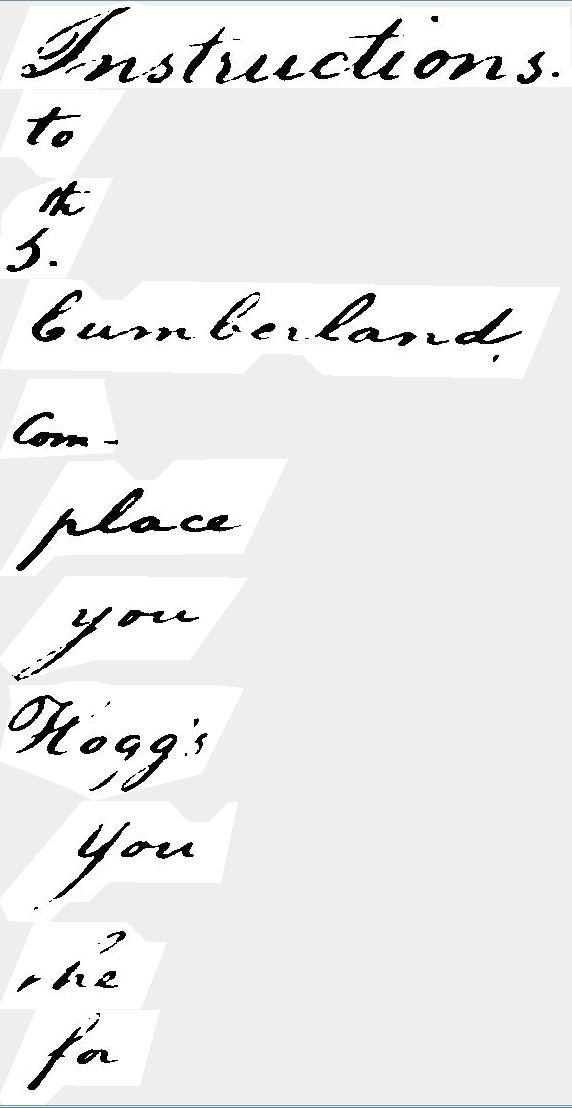 Instructions.
to
th
5.
Cumberland,
Com-
place
you
Hogg's
you
the
for